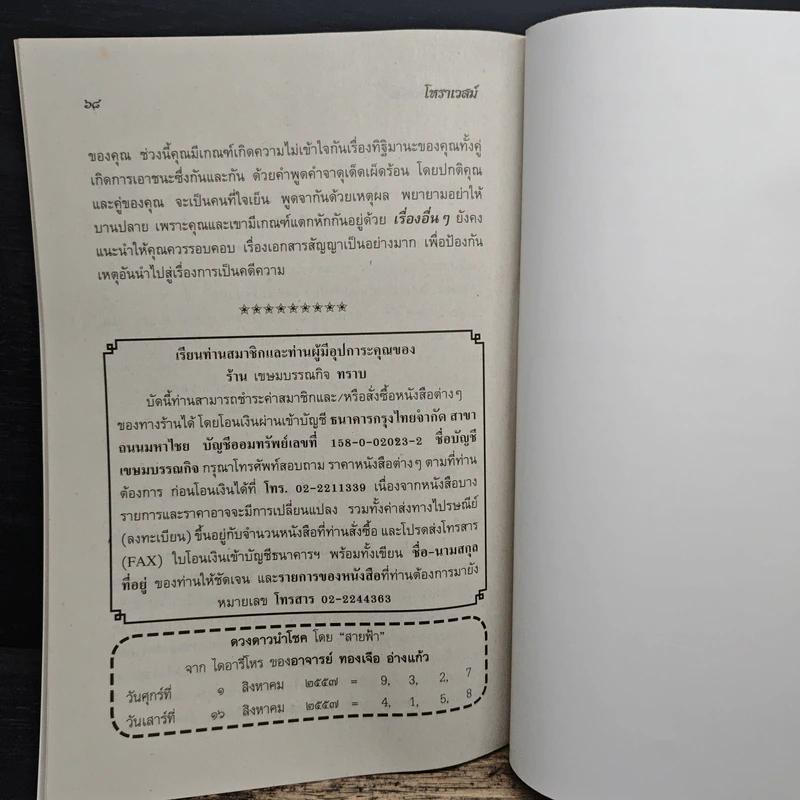 ๖๘
โหราเวสม์
ของคุณ ช่วงนี้คุณมีเกณฑ์เกิดความไม่เข้าใจกันเรื่องทิฐิมานะของคุณทั้งคู่
เกิดการเอาชนะซึ่งกันและกัน ด้วยคำพูดคำจาดุเด็ดเผ็ดร้อน โดยปกติคุณ
และคู่ของคุณ จะเป็นคนที่ใจเย็น พูดจากันด้วยเหตุผล พยายามอย่าให้
บานปลาย เพราะคุณและเขามีเกณฑ์แตกหักกันอยู่ด้วย เรื่องอื่นๆ ยังคง
แนะนำให้คุณควรรอบคอบ เรื่องเอกสารสัญญาเป็นอย่างมาก เพื่อป้องกัน
เหตุอันนำไปสู่เรื่องการเป็นคดีความ
เรียนท่านสมาชิกและท่านผู้มีอุปการะคุณของ
ร้าน เขษมบรรณกิจ ทราบ
บัดนี้ท่านสามารถชำระค่าสมาชิกและ/หรือสั่งซื้อหนังสือต่างๆ
ของทางร้านได้ โดยโอนเงินผ่านเข้าบัญชี ธนาคารกรุงไทยจำกัด สาขา
ถนนมหาไชย บัญชีออมทรัพย์เลขที่ 158-0-02023-2 ชื่อบัญชี
เขษมบรรณกิจ กรุณาโทรศัพท์สอบถาม ราคาหนังสือต่างๆ ตามที่ท่าน
ต้องการ ก่อนโอนเงินได้ที่ โทร. 02-2211339 เนื่องจากหนังสือบาง
รายการและราคาอาจจะมีการเปลี่ยนแปลง รวมทั้งค่าส่งทางไปรษณีย์
(ลงทะเบียน) ขึ้นอยู่กับจำนวนหนังสือที่ท่านสั่งซื้อ และโปรดส่งโทรสาร
(FAX) ใบโอนเงินเข้าบัญชีธนาคารฯ พร้อมทั้งเขียน ชื่อ-นามสกุล
ที่อยู่ ของท่านให้ชัดเจน และรายการของหนังสือที่ท่านต้องการมายัง
หมายเลข โทรสาร 02-2244363
ดวงดาวนำโชค โดย “สายฟ้า”
จาก ไดอารี่โหร ของอาจารย์ ทองเจือ อ่างแก้ว
วันศุกร์ที่ ๑ สิงหาคม ๒๕๕๗ = 9, 3, 2, 7
วันเสาร์ที่ ๑๖ สิงหาคม ๒๕๕๗ = 4, 1, 5, 8